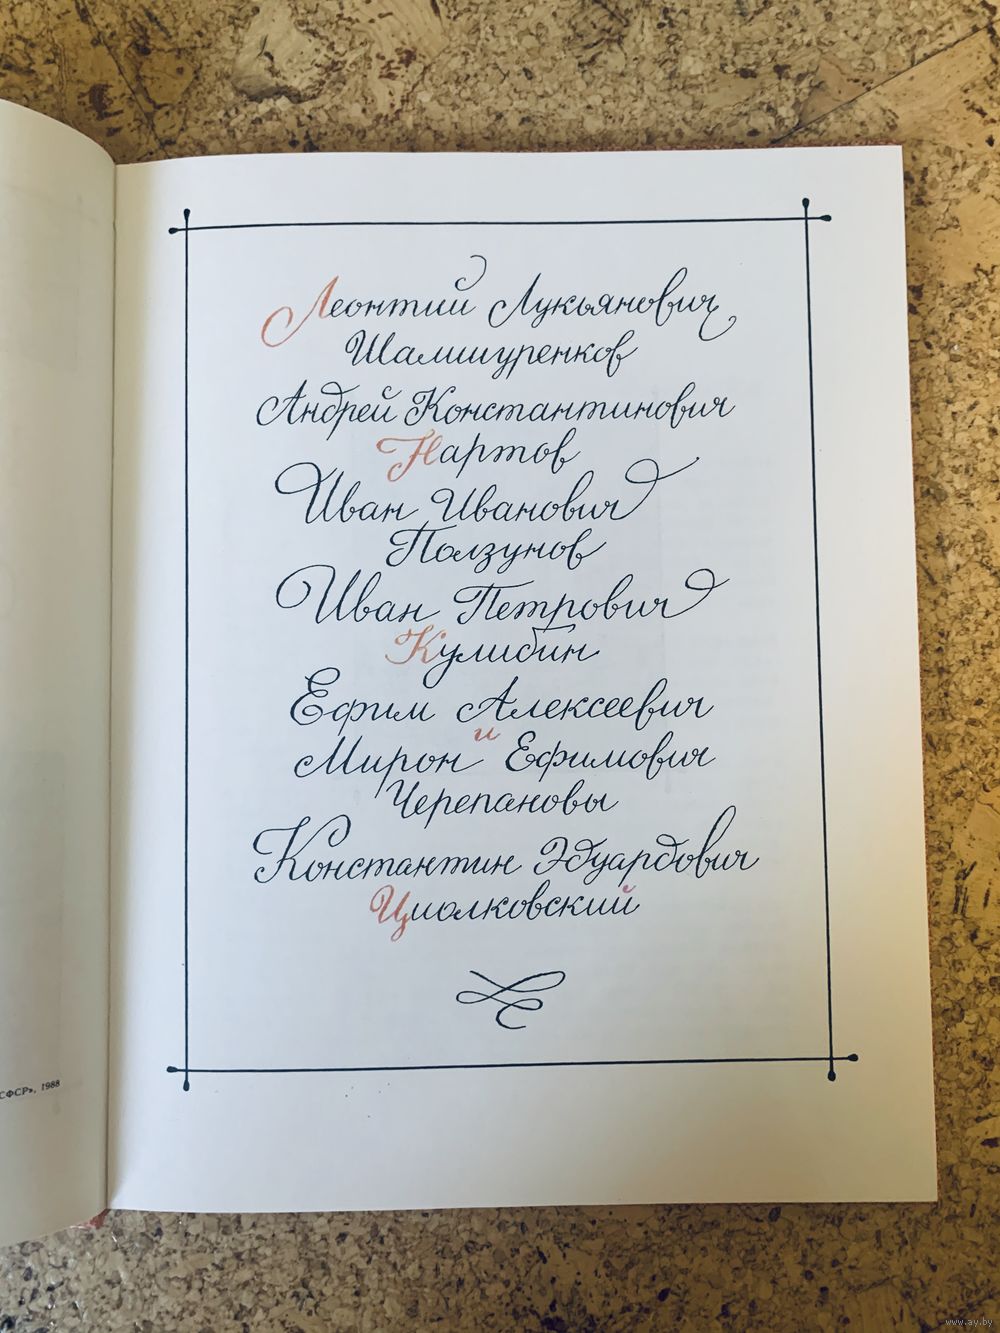 Леонтий Лукьянович
Шамшуренков
Андрей Константинович
Нартов
Иван Иванович
Ползунов
Иван Петрович
Кулибин
Ефим Алексеевич
и
Мирон Ефимович
Черепановы
Константин Эдуардович
Циолковский
СФСР», 1988
www.ay.by